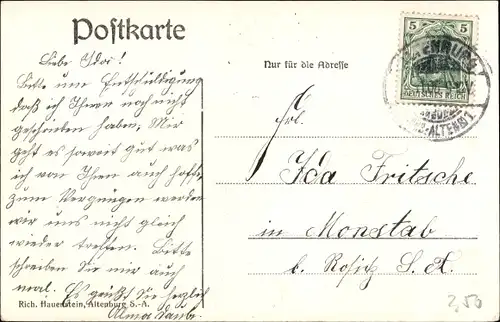 Postkarte
Liebe Ida!
Bitte um Entschuldigung
daß ich Ihnen noch nicht
geschrieben haben, Mir
geht es soweit gut was
ich von Ihnen auch hoffe
zum Vergnügen werden
wir uns nicht gleich
wieder treffen. Bitte
schreiben Sie mir auch
mal! Es grüßt Sie herzlich
Alma
Rich. Hauenstein, Altenburg S.-A.
Nur für die Adresse
5 5
DEUTSCHES REICH
Frl.
Ida Fritsche
in Monstab
b. Rositz S. A.
2,50